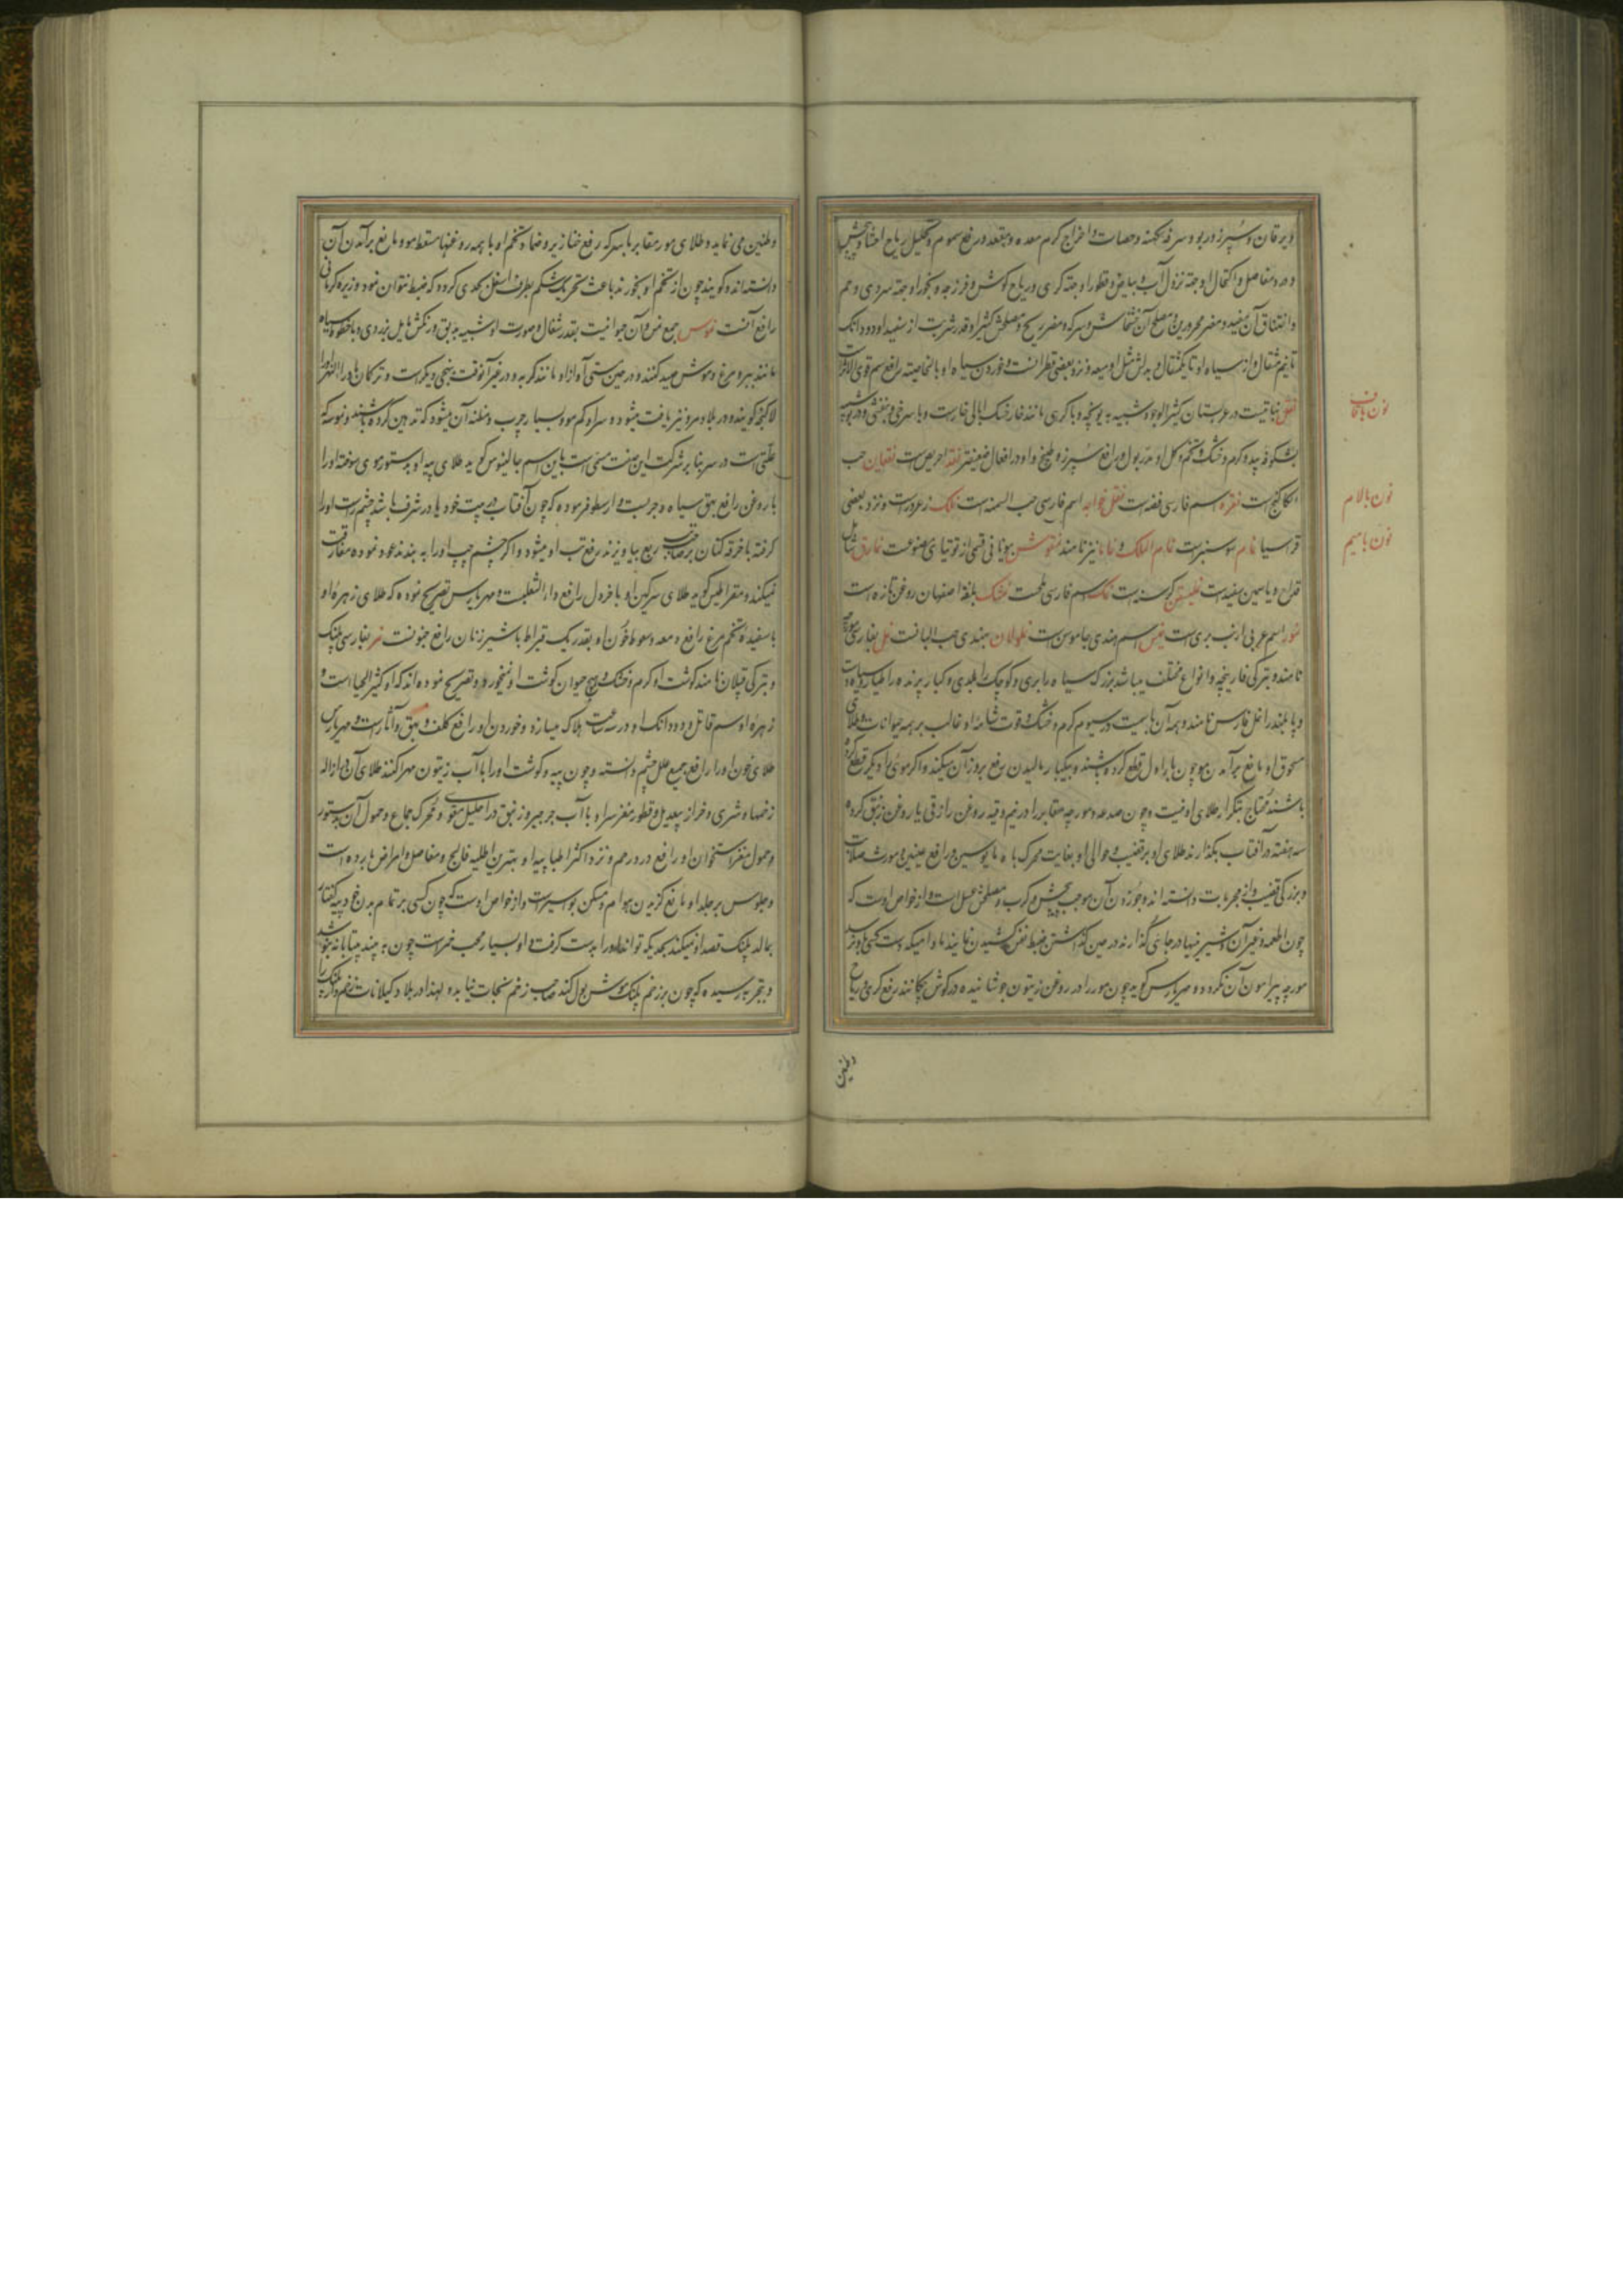 ویرقان و سپرز و ربو و سرفه کهنه و حصات و اخراج کرم معده و مقعد و رفع سموم و تحلیل ریاح احشا و پیش
و درد مفاصل و اکتحال او جهته نزول آب و بیاض و قطور او جهته کری و ریاح گوش و فرزجه و بخور او جهته سردی رحم
و اختناق آن مفید و مضر محرورین و مصلح آن خشخاش و سرکه و مضر ریه و مصلحش کثیرا و قدر شربت از سفید او دو دانک
تا نیم مثقال و از سیاه او تا یکمثقال و بدلش مثل او میعه و نزد بعضی قطرانست و خوردن سیاه او بالخاصیته رافع سم قوی الاثر است
نباتیست در عربستان کثیر الوجود شبیه به یونجه و باکری مانند خار خسک ابالی خارست و با سرخی و بنفشی و در بو شبیه
بشکوفه بید و گرم و خشک و تخم و گل او مدر بول و رافع سپرز و طبیخ
کاکنج است نقره اسم فارسی فضه است نقل خواجه اسم فارسی حب السمنه است نلک زعرورست و نزد بعضی
قراسیا نمام سوسنبرست نمام الملک و نمانا نیز نامند یونانی قسمی از توتیای مصنوعست نمارق
و یاسمین سفیدست نمک اسم فارسی ملحست نمشک بلغة اصفهان روغن تازه است
اسم عربی ارنب بری است اسم هندی جاموس است بهندی حب البانست نمل بفارسی مورچه
نامند و بترکی قارینجه و انواع مختلف میباشد بزرک سیاه را بری و کوچک را بلدی و کبار پرنده را طیار
و پا بلند را نمل فارس نامند و همه آن باسیت در سیوم گرم و خشک و قوت شامه او غالب بر همه حیوانات و طلای
مسحوق او مانع برآمدن مو چون بار اول قطع کرده باشند و بیکبار مالیدن رفع بروز آن میکند و اگر موی را دیگر قطع کرده
باشند محتاج بتکرار طلای او نیست و چون صد عدد مورچه مقابر را در نیم وقیه روغن رازقی یا روغن زنبق کرده
سه هفته در آفتاب بگذارند طلای او بر قضیب و حوالی او بغایت محرک باه مایوسین و رافع عنین و مورث صلابت
و بزرکی قضیب و از مجربات دانسته اند و خوردن آن موجب پیچش و کرب و مصلحش عسل است و از خواص اوست که
چون اطعمه و غیر آن و شیرینیها در جائی گذارند در حین گذاشتن ضبط نفس کشیدن نمایند مادامیکه دست کسی باو نرسد
مورچه پیرامون آن نگردد و مهریارس گوید چون مور را در روغن زیتون جوشانیده در گوش چکانند رفع کری و ریاح
وطنین
نون باقاف
نون بالام
نون بامیم
وطنین می نماید و طلای مور مقابر با سرکه رفع خنازیر و ضماد تخم او با همه روغنها مسقط مو و مانع برآمدن آن
دانسته اند و گویند چون از تخم او بخورند باعث تحریک شکم بطرف اسفل بحدی گردد که ضبط نتوان نمود و زیره کرمانی
رافع آنست نموس جمع نمس و آن حیوانیست بقدر شغال و صورت او شبیه به بق و رنگش مایل بزردی و با خطوط سیاه
مانند ببر و مرغ و موش صید کنند و در حین مستی آواز او مانند گربه و در غیر آنوقت بنهجی دیگرست و ترکمان ماوراء النهر او را
لاکنجه گویند و در بلاد مرو نیز یافت میشود و سر او کم مو و بسیار چرب و مظنه آن میشود که تدهین کرده باشند و نموسه که
علتی است در سر بنا بر شرکت این صفت مسمی است باین اسم جالینوس گوید طلای پیه او بدستور موی سوخته او را
با روغن رافع بهق سیاه و مجربست و ارسطو فرموده که چون آفتاب در بیت خود یا در شرف باشد چشم راست او را
گرفته با خرقه کتان بر صاحب تب ربع بیاویزند رفع تب او میشود و اگر چشم چپ او را به بندند عود نموده مفارقت
نمیکند و سقراطیس گوید طلای سرگین او با خردل رافع داء الثعلبست و مهریارس تصریح نموده که طلای زهره او
با سفیده تخم مرغ رافع دمعه و سعوط خون او بقدر یک قیراط با شیر زنان رافع جنونست نمر بفارسی پلنک
و بترکی قپلان نامند گوشت او گرم و خشک و هیچ حیوان گوشت او نمیخورد و تصریح نموده اند که او کثیر الحیا است و
زهره او سم قاتل و دو دانک او در سه ساعت هلاک میسازد و خوردن او رافع کلف و بهق و آثارست و مهریارس
طلای خون او را رافع جمیع علل چشم دانسته و چون پیه و گوشت او را با آب زیتون مهرا کنند طلای آن در ازاله
زخمها و شری و خراز بیعدیل و قطور مغز سر او با آب جرجیر و زنبق در احلیل مقوی و محرک جماع و حمول آن بدستور
و حمول مغز استخوان او رافع درد رحم و نزد اکثر اطبا پیه او بهترین اطلیه فالج و مفاصل و امراض بارده است
و جلوس بر جلد او مانع گزیدن هوام و مسکن بواسیرست و از خواص اوست که چون کسی بر تمام بدن خود پیه کفتار
بمالد پلنک قصد او نمیکند بحدیکه تواند او را بدست گرفت و او بسیار محب خمرست چون به بیند بیتابانه بنوشد
و بتجربه رسیده که چون بر زخم پلنک موش بول کند صاحب زخم نجات نیابد و لهذا در بلاد گیلانات زخم دار پلنک را